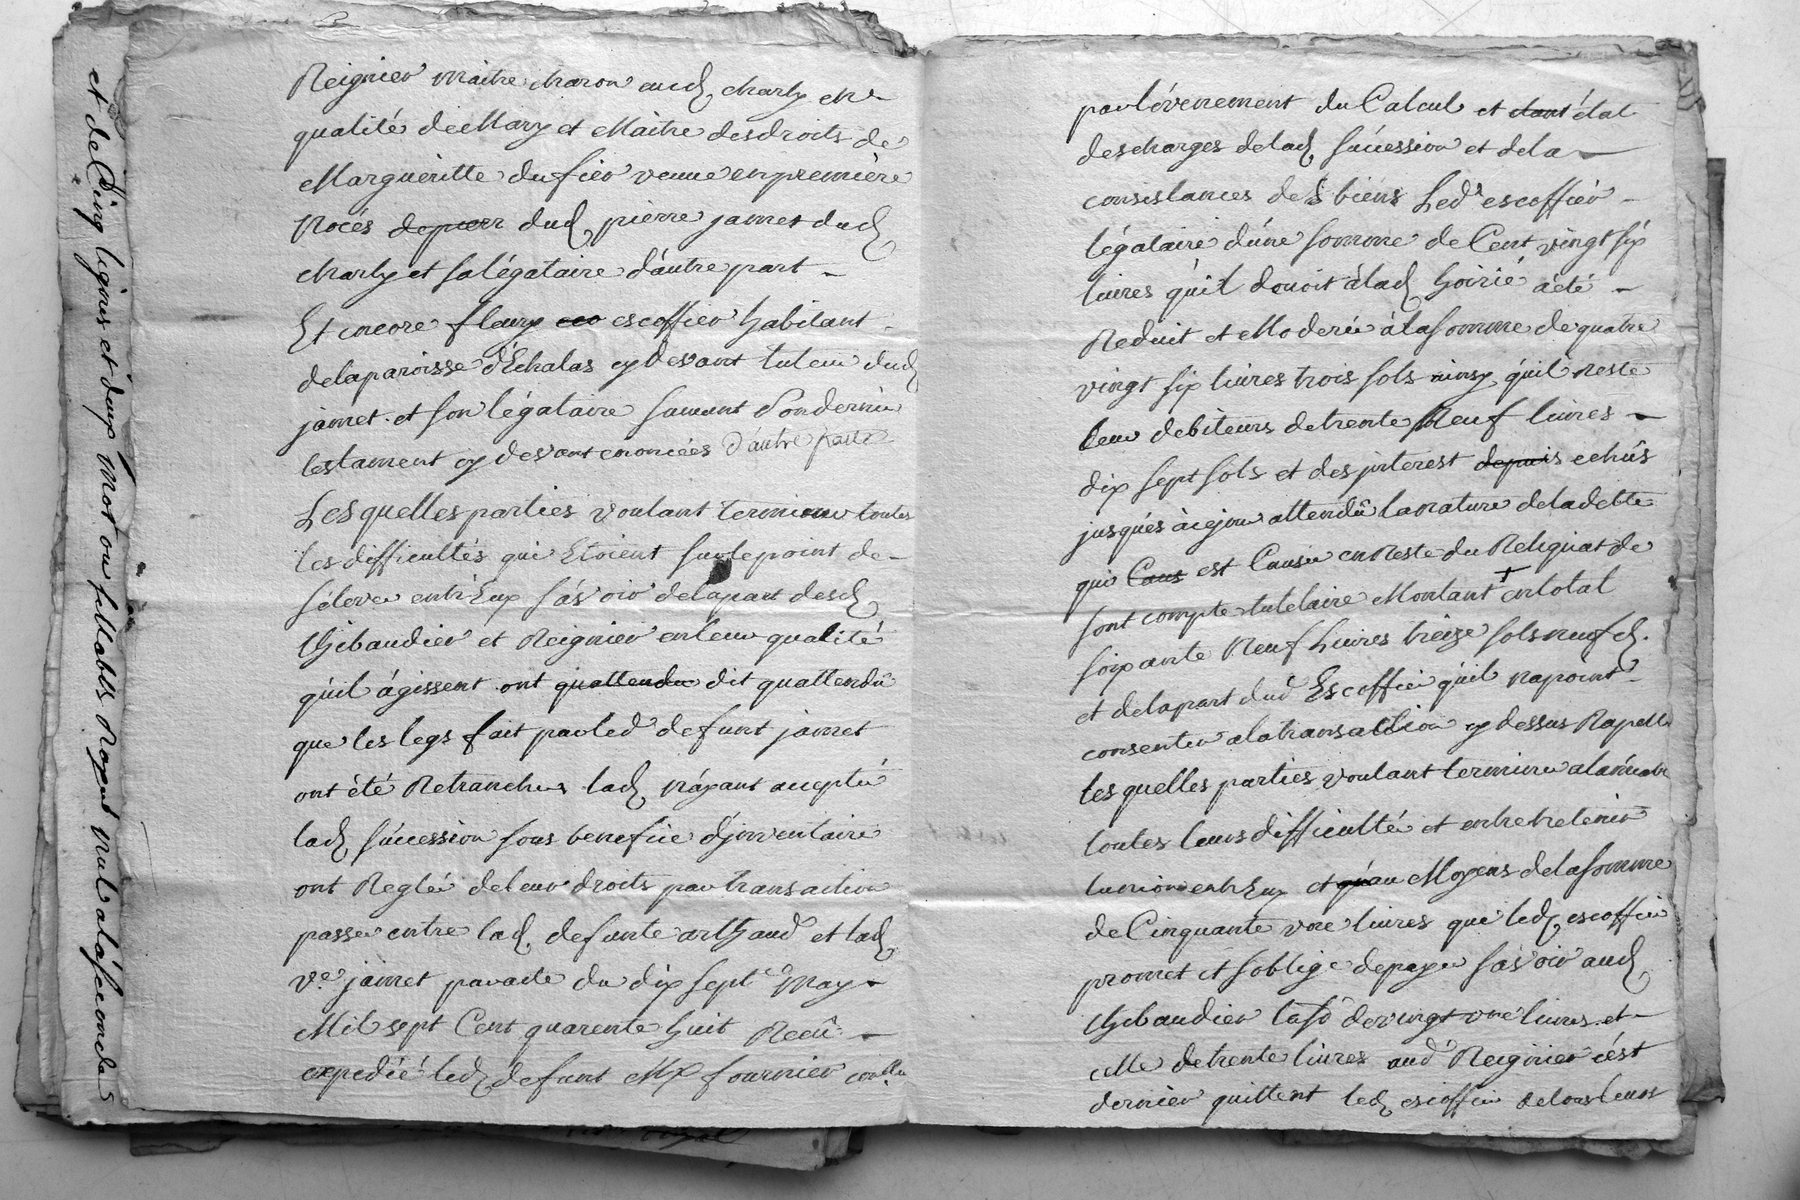 et de Cinq lignes et deux mot ou sillabes Rayes nul a la seconde
Reignier maitre charon aud. charly en
qualité de Mary et Maitre des droits de
Margueritte dufier veuve en première
Nocés depierr dud. pierre jamet dud.
charly et sa légataire d'autre part
Et encore fleury escoffier habitant
de la paroisse d'Echalas cy devant tuteur dud.
jamet et son légataire suivant Son dernier
testament cy devant enoncées d'autre part
Les quelles parties voulant terminer toutes
les difficultés qui Etoient sur le point de
s'élever entr'Eux sás'voir de la part desd.
thibaudier et Reignier en leur qualité
qu'il ágissent ont quattendu dit quattendû
que les legs fait par led. defunt jamet
ont été Retranchés lad. n'áyant accepté
lad. súccession sous benefice d'jnventaire
ont Reglés de leur droits par transaction
passée entre lad. defunte arthaud et lad.
ve. jamet par acte du dix sept May
Mil sept Cent quarente huit Recû
expedié led. defunt Me fournier
par l'évenement du Calcul et etant état
des charges de lad. súccession et de la
consistances des biens Led. escoffier
légataire d'úne somme de Cent vingt six
livres qu'il devoit á lad. hoirie á été
Reduit et Moderée à la somme de quatre
vingt six livres trois sols ainsy qu'il reste
leur debiteurs de trente Neuf livres
dix sept sols et des jnterest depuis echûs
jusqués à ce jour attendû la nature de la dette
qui Caus est Causée en Reste du Reliquat de
sont compte tutelaire Montant + en total
soixante Neuf Livres treize sols neuf d.
et de la part dud. Escoffier qu'il n'a point
consenter a la transaction cy dessus Rapellé
les quelles parties voulant terminer a l'amiable
toutes leurs difficultés et entretretenir
l'union entr'Eux et qu'au Moyens de la somme
de Cinquante une livres que led. escoffier
promet et s'oblige de payer sás'voir aud.
thibaudier la so de vingt une livres et
celle de trente livres aud. Reignier cést
dernier quittent led. escoffier de tous leurs